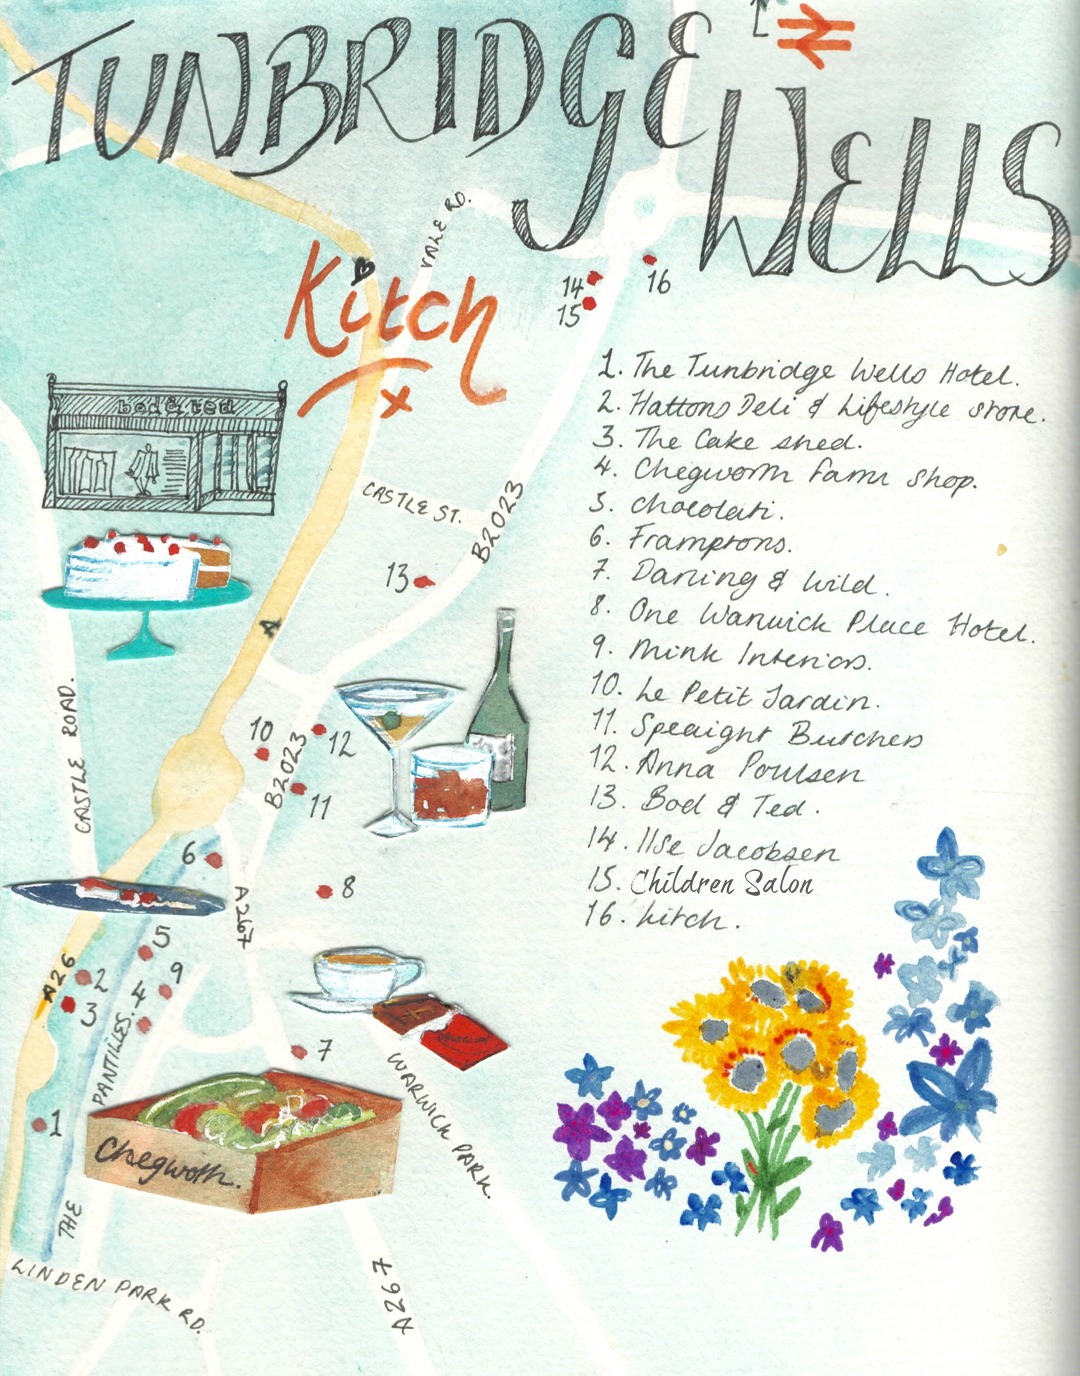 TUNBRIDGE
WELLS
VALE RD.
Kitch
x
14
15
16
bod & ted
CASTLE ST.
B2023
13
A
CASTLE ROAD.
10
12
B2023
11
6
8
A267
A26
5
2
9
3
4
PANTILLES.
THE
7
1
Chegworth.
WARWICK PARK.
LINDEN PARK RD.
A267
1. The Tunbridge Wells Hotel.
2. Hattons Deli & Lifestyle store.
3. The Cake shed.
4. Chegworth Farm Shop.
5. Chocolati.
6. Framptons.
7. Darling & Wild.
8. One Warwick Place Hotel.
9. Mink Interiors.
10. Le Petit Jardin.
11. Speaight Butchers
12. Anna Poulsen
13. Bod & Ted.
14. Ilse Jacobsen
15. Children Salon
16. kitch.